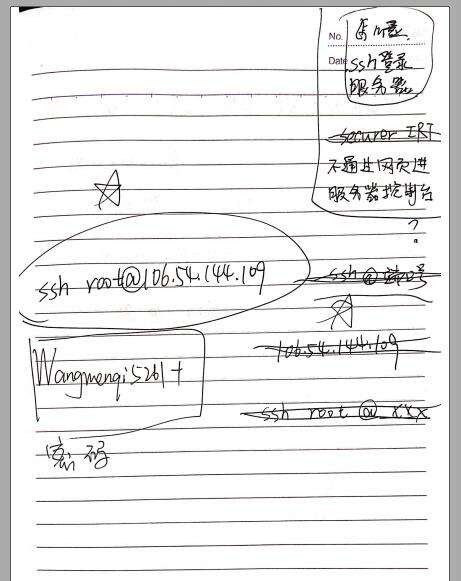 No.
Date ssh登录
服务器
securer IRT
不通过网页进
服务器控制台
?
ssh root@106.54.144.109
ssh @ 端口号
106.54.144.109
Wangmengi5261+
ssh root @ xxx
密码